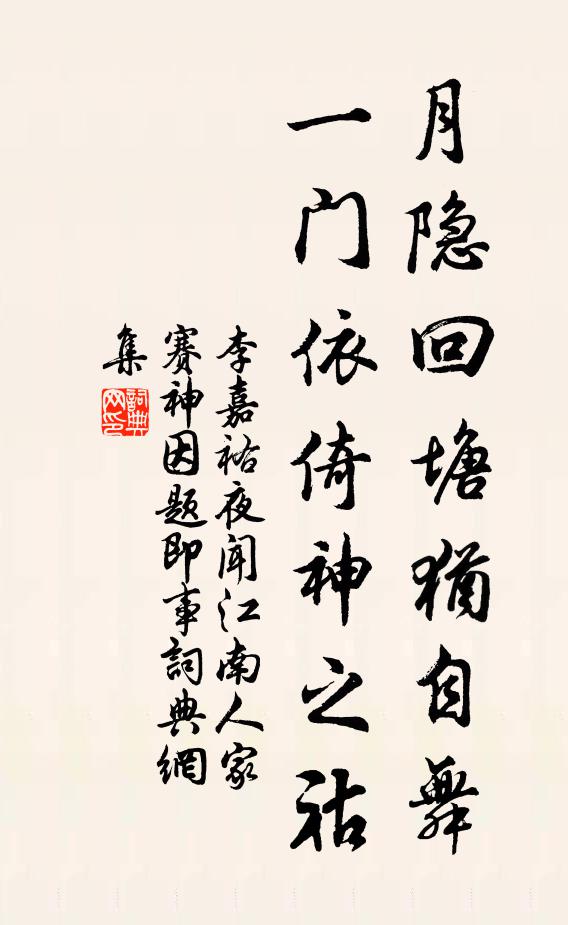 月隐回塘猶自舞
一门依倚神之祜
李嘉祐夜闻江南人家
赛神因题即事詞典網
集
詞典
网印